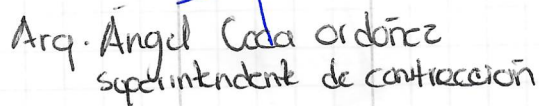 Arq. Ángel Coda ordoñez
superintendente de contrucción